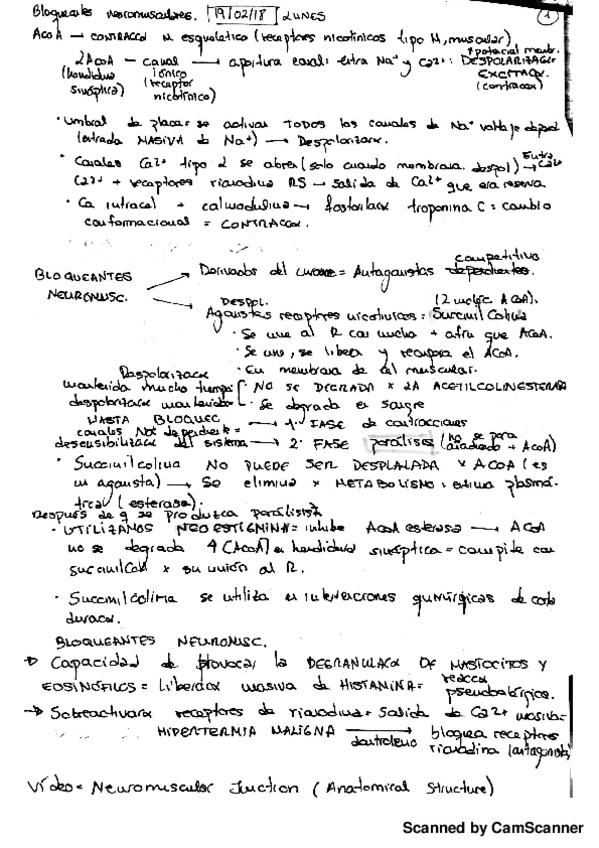 Bloqueantes neuromusculares. 19/02/18 LUNES 1
AcoA → contracción M esquelético (receptores nicotínicos tipo M, muscular)
2 AcoA → canal → apertura canal: entra Na⁺ y Ca²⁺: DESPOLARIZACIÓN
+ potencial memb.
(hendidura sináptica) iónico (receptor nicotínico) EXCITACIÓN (contracción)
· Umbral de placa: se activan TODOS los canales de Na⁺ voltaje depend
(entrada MASIVA de Na⁺) → Despolarización.
· Canales Ca²⁺ tipo 2 se abren (solo cuando membrana despol) → Entra Ca²⁺
Ca²⁺ + receptores rianodina RS → salida de Ca²⁺ que era reserva
· Ca intracel + calmodulina → fosforilación troponina C = cambio
conformacional = CONTRACCIÓN.
BLOQUEANTES NEUROMUSC.
→ Derivados del curare = Antagonistas competitivo dependientes.
→ Despol. (2 molec AcoA).
Agonistas receptores nicotínicos: Succinil Colina
· Se une al R con mucha + afin que AcoA.
· Se une, se libera y recupera el AcoA.
· En membrana de cel muscular.
Despolarización
mantenida mucho tiempo · NO SE DEGRADA x LA ACETILCOLINESTERASA
despolarización mantenida · Se degrada en sangre
HASTA BLOQUEO → 1ª FASE de contracciones
canales Na⁺ dependiente =
desensibilización del sistema → 2ª FASE parálisis (no se para añadiendo + AcoA)
· Succinilcolina NO PUEDE SER DESPLAZADA x AcoA (es
un agonista) → Se elimina x METABOLISMO: enzima plasmá-
tica (esterasa).
Después de q se produzca parálisis
· UTILIZAMOS NEOESTIGMINA = inhibe AcoA esterasa → AcoA
no se degrada ↑ (AcoA) en hendidura sináptica = compite con
succinilcol x su unión al R.
· Succinilcolina se utiliza en intervenciones quirúrgicas de corta
duración.
BLOQUEANTES NEUROMUSC.
→ Capacidad de provocar la DEGRANULACIÓN DE MASTOCITOS Y
EOSINÓFILOS = Liberación masiva de HISTAMINA = reacción pseudoalérgica.
→ Sobreactivación receptores de rianodina = Salida de Ca²⁺ masiva =
HIPERTERMIA MALIGNA → dantroleno bloquea receptores
rianodina (antagonista)
Vídeo = Neuromuscular Junction (Anatomical Structure)
Scanned by CamScanner